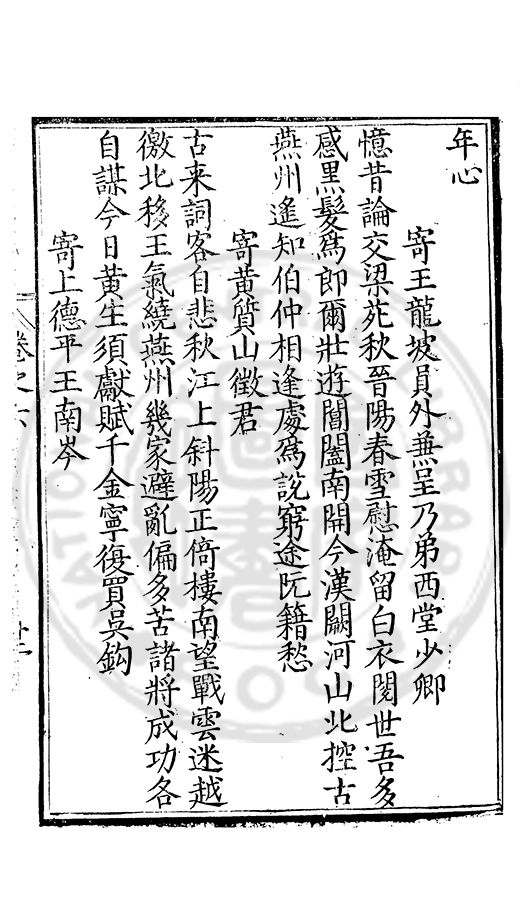 年心
寄王龍坡員外兼呈乃弟西堂少卿
憶昔論交梁苑秋晉陽春雪慰淹留白衣閱世吾多
感黑髮爲郎爾壯遊閶闔南開今漢闕河山北控古
燕州遙知伯仲相逢處爲說窮途阮籍愁
寄黄質山徵君
古来詞客自悲秋江上斜陽正倚樓南望戰雲迷越
徼北移王氣繞燕州幾家避亂偏多苦諸將成功各
自謀今日黄生須獻賦千金寧復買吳鈎
寄上德平王南岑
卷之六